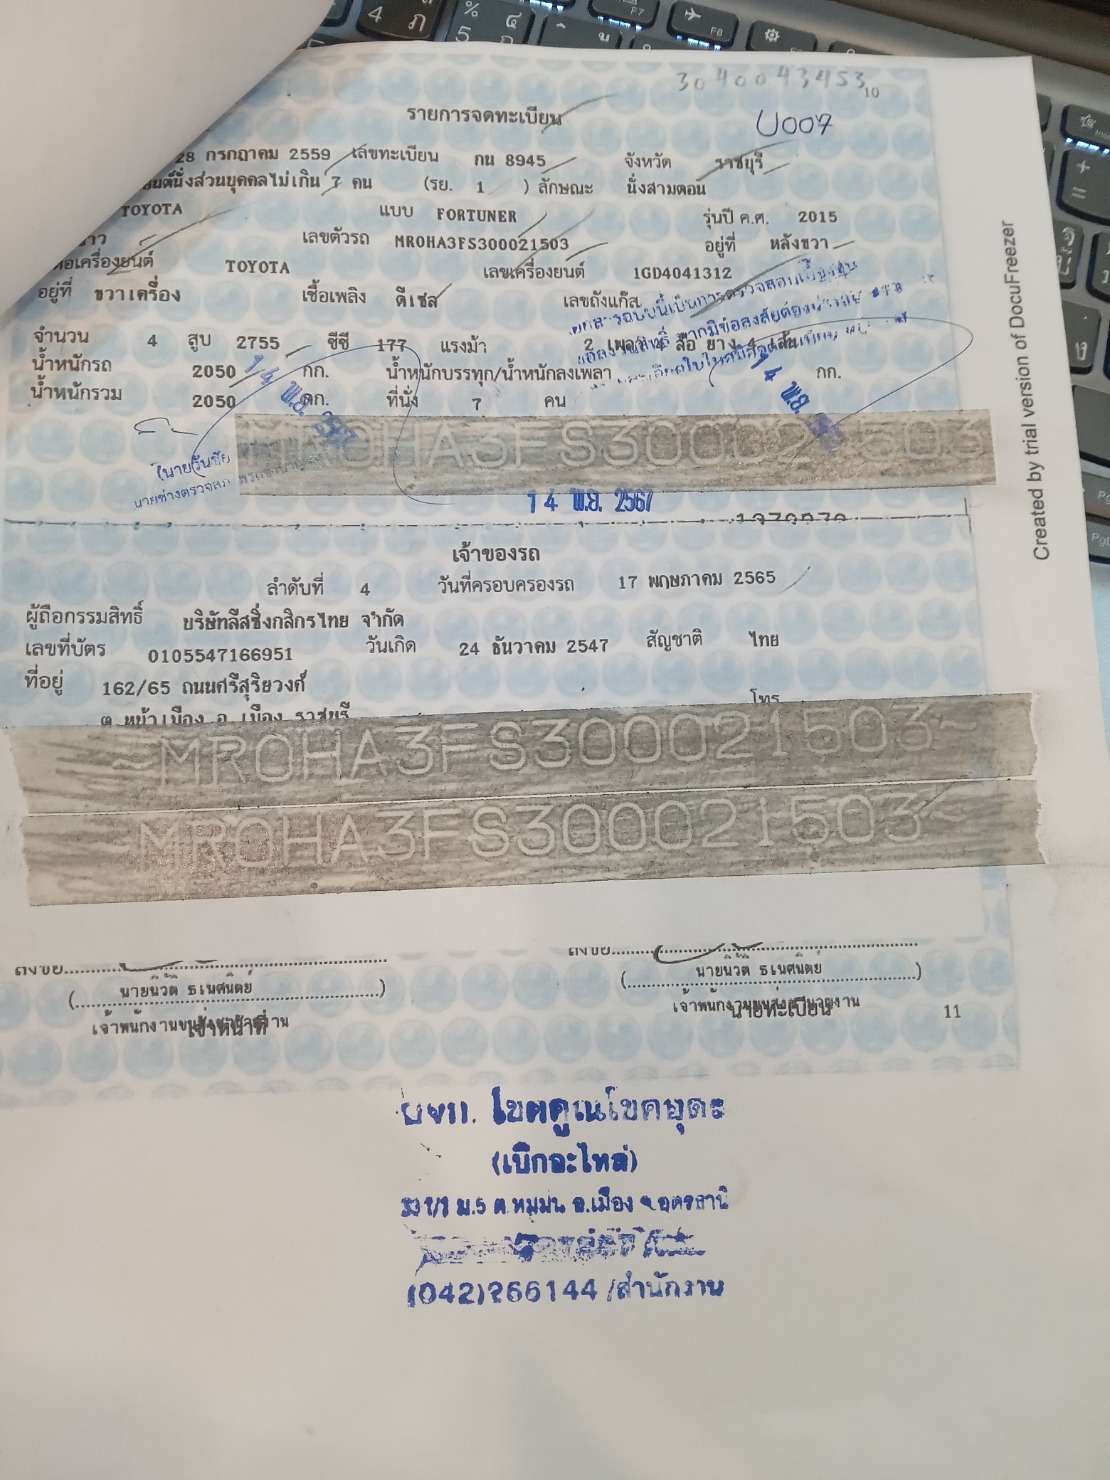 4 ภ % 5 ๔ F7 F8
3040043453
10
รายการจดทะเบียน
U007
28 กรกฎาคม 2559 เลขทะเบียน กน 8945 จังหวัด ราชบุรี
ยนต์นั่งส่วนบุคคลไม่เกิน 7 คน (รย. 1 ) ลักษณะ นั่งสามตอน
TOYOTA แบบ FORTUNER รุ่นปี ค.ศ. 2015
าว เลขตัวรถ MR0HA3FS300021503 อยู่ที่ หลังขวา
ห้อเครื่องยนต์ TOYOTA เลขเครื่องยนต์ 1GD4041312
อยู่ที่ ขวาเครื่อง เชื้อเพลิง ดีเซล เลขถังแก๊ส
จำนวน 4 สูบ 2755 ซีซี 177 แรงม้า 2 เพลา 4 ล้อ ยาง 4 เส้น
น้ำหนักรถ 2050 กก. น้ำหนักบรรทุก/น้ำหนักลงเพลา กก.
น้ำหนักรวม 2050 กก. ที่นั่ง 7 คน
14 พ.ย.
14 พ.ย.
MR0HA3FS300021503
(นายวันชัย
นายช่างตรวจสภาพ
14 พ.ย. 2567
เจ้าของรถ
ลำดับที่ 4 วันที่ครอบครองรถ 17 พฤษภาคม 2565
ผู้ถือกรรมสิทธิ์ บริษัทลีสซิ่งกสิกรไทย จำกัด
เลขที่บัตร 0105547166951 วันเกิด 24 ธันวาคม 2547 สัญชาติ ไทย
ที่อยู่ 162/65 ถนนศรีสุริยวงศ์
ต.หน้าเมือง อ.เมือง ราชบุรี โทร
~MR0HA3FS300021503~
~MR0HA3FS300021503~
ลงชื่อ ลงชื่อ
(นายนิวัติ ธเนศนิตย์) (นายนิวัติ ธเนศนิตย์)
เจ้าหน้าที่ นายทะเบียน 11
หจก. โชคคูณโชคอุดร
(เบิกอะไหล่)
ม.5 ต.หมูม่น อ.เมือง จ.อุดรธานี
(042)266144 /สำนักงาน
Created by trial version of DocuFreezer